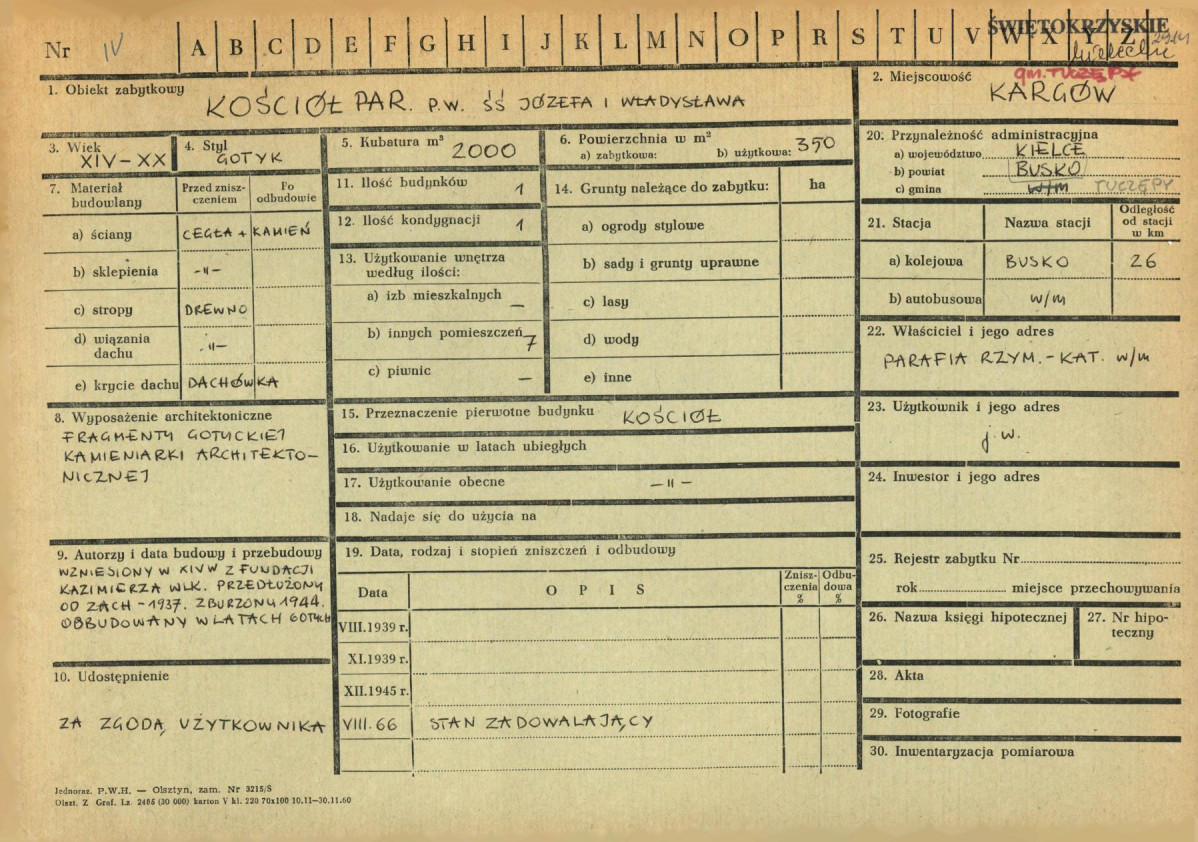 Nr IV A B C D E F G H I J K L M N O P R S T U V W X Y Z
ŚWIĘTOKRZYSKIE
gm. TUCZĘPY
1. Obiekt zabytkowy
KOŚCIÓŁ PAR. P.W. ŚŚ JÓZEFA I WŁADYSŁAWA
2. Miejscowość
KARGÓW
3. Wiek
XIV – XX
4. Styl
GOTYK
5. Kubatura m³ 2000
6. Powierzchnia w m²
a) zabytkowa: b) użytkowa: 350
20. Przynależność administracyjna
a) województwo KIELCE
b) powiat BUSKO
c) gmina w/m TUCZĘPY
7. Materiał budowlany
Przed zniszczeniem
Po odbudowie
a) ściany CEGŁA + KAMIEŃ
b) sklepienia -"-
c) stropy DREWNO
d) wiązania dachu -"-
e) krycie dachu DACHÓWKA
11. Ilość budynków 1
12. Ilość kondygnacji 1
13. Użytkowanie wnętrza
według ilości:
a) izb mieszkalnych –
b) innych pomieszczeń 7
c) piwnic –
14. Grunty należące do zabytku: ha
a) ogrody stylowe
b) sady i grunty uprawne
c) lasy
d) wody
e) inne
21. Stacja Nazwa stacji Odległość od stacji w km
a) kolejowa BUSKO 26
b) autobusowa w/m
22. Właściciel i jego adres
PARAFIA RZYM.-KAT. w/m
8. Wyposażenie architektoniczne
FRAGMENTY GOTYCKIEJ
KAMIENIARKI ARCHITEKTO-
NICZNEJ
15. Przeznaczenie pierwotne budynku KOŚCIÓŁ
16. Użytkowanie w latach ubiegłych
17. Użytkowanie obecne –"–
18. Nadaje się do użycia na
23. Użytkownik i jego adres
j.w.
24. Inwestor i jego adres
9. Autorzy i data budowy i przebudowy
WZNIESIONY W XIVW Z FUNDACJI
KAZIMIERZA WLK. PRZEDŁUŻONY
OD ZACH – 1937. ZBURZONY 1944.
OBBUDOWANY W LATACH GOTYCH
19. Data, rodzaj i stopień zniszczeń i odbudowy
Data OPIS Zniszczenia % Odbudowa %
VIII.1939 r.
XI.1939 r.
XII.1945 r.
VIII.66 STAN ZADOWALAJĄCY
25. Rejestr zabytku Nr
rok miejsce przechowywania
26. Nazwa księgi hipotecznej
27. Nr hipoteczny
10. Udostępnienie
ZA ZGODĄ UŻYTKOWNIKA
28. Akta
29. Fotografie
30. Inwentaryzacja pomiarowa
Jednoraz. P.W.H. — Olsztyn, zam. Nr 3215/S
Olszt. Z. Graf. Lz. 2405 (30 000) karton V kl. 220 70x100 10.11—30.11.60